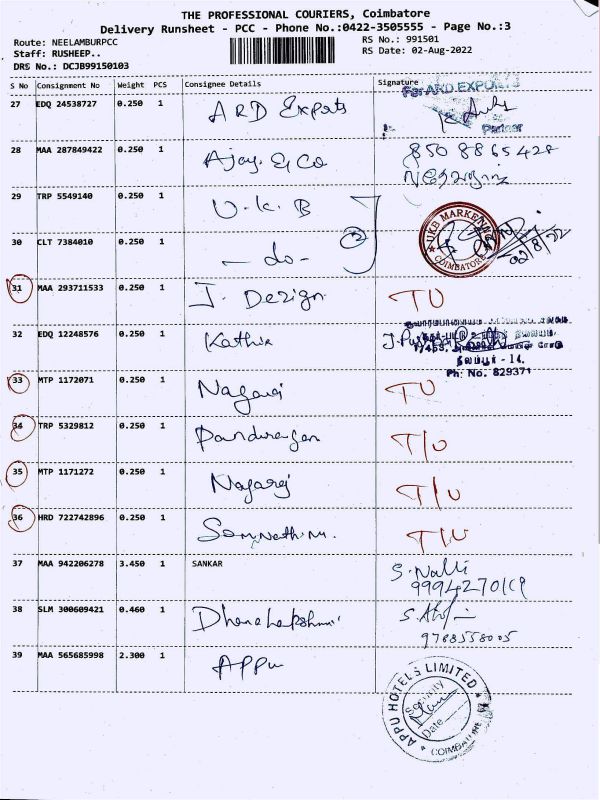 THE PROFESSIONAL COURIERS, Coimbatore
Delivery Runsheet - PCC - Phone No.:0422-3505555 - Page No.:3
Route: NEELAMBURPCC
RS No.: 991501
Staff: RUSHEEP..
RS Date: 02-Aug-2022
DRS No.: DCJB99150103
S No Consignment No Weight PCS Consignee Details Signature
27 EDQ 24538727 0.250 1 ARD Exports For ARD EXPORTS
Partner
28 MAA 287849422 0.250 1 Ajay & Co 8508865428
29 TRP 5549140 0.250 1 U.K.B
UKB MARKETING
COIMBATORE
02/8/22
30 CLT 7384010 0.250 1 - do - 2
31 MAA 293711533 0.250 1 J. Design TU
32 EDQ 12248576 0.250 1 Kathir
நீலம்பூர் - 14.
Ph: No. 829371
33 MTP 1172071 0.250 1 Nagaraj TU
34 TRP 5329812 0.250 1 Pandurangan T/U
35 MTP 1171272 0.250 1 Nagaraj T/U
36 HRD 722742896 0.250 1 Somnath T/U
37 MAA 942206278 3.450 1 SANKAR S. Nalli
38 SLM 300609421 0.460 1 Dhanalakshmi
9788558005
39 MAA 565685998 2.300 1 APPu
APPU HOTELS LIMITED
Security
Date
COIMBATORE